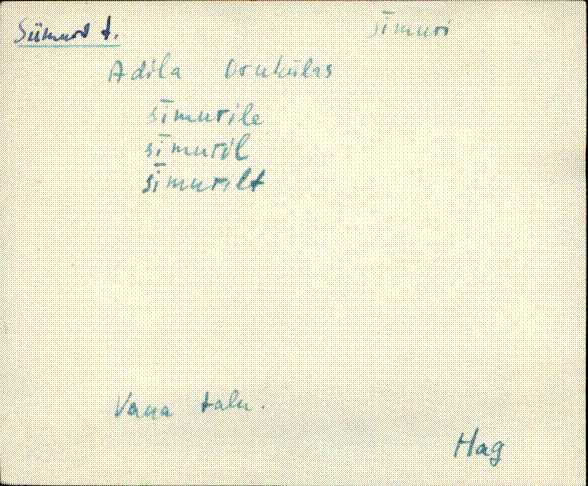 Siimuri t. sīmuri
Adila Orukülas
sīmurile
sīmuril
sīmurilt
Vana talu.
Hag